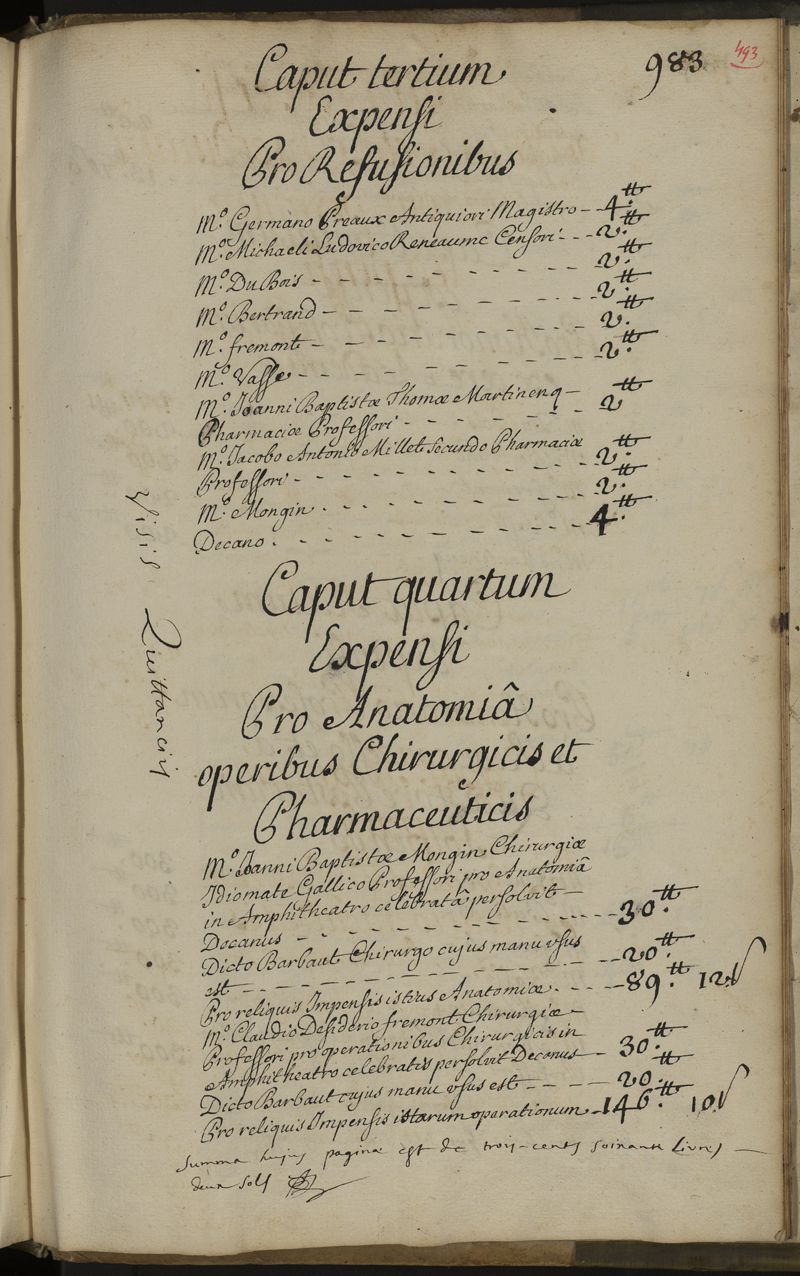 983 493
Caput tertium
Expensi
Pro Refusionibus
M.o Germano Preaux Antiquiori Magistro - 4.tt
M.o Michaeli Ludovico Reneaume Censori - - 2.tt
M.o Du Bois - - - - - - - - - 2.tt
M.o Bertrand - - - - - - - - - 2.tt
M.o fremont - - - - - - - - - 2.tt
M.o Vasse - - - - - - - - - 2.tt
M.o Joanni Baptistæ Thomæ Martinenq -
Pharmaciæ Professori - - - - - - 2tt
M.o Jacobo Antonio Millet Secundo Pharmaciæ
Professori - - - - - - - - - 2.tt
M.o Mongin . - - - - - - - - 2.tt
Decano . - - - - - - - - - 4.tt
Visis Quittanciis
Caput quartum
Expensi
Pro Anatomiâ
operibus Chirurgicis et
Pharmaceuticis
M.o Joanni Baptistæ Mongin Chirurgiæ
Idiomate Gallico Professori pro Anatomiâ
in Amphitheatro celebratâ persolvit -
Decanus - - - - - - - - - 30.tt
Dicto Barbaut Chirurgo cujus manu usus
est - - - - - - - - - - - 20.tt
Pro reliquis Impensis istius Anatomiæ . - - - 89.tt 12s
M.o Claudio Desiderio fremont Chirurgiæ -
Professori pro operationibus Chirurgicis in
Amphitheatro celebratis persolvit Decanus - 30.tt
Dicto Barbaut cujus manu usus est - - - - 20.tt
Pro reliquis Impensis istarum operationum - 146.tt 10s
Summa hujus paginæ est de trois-cents soixante Livres -
deux sols